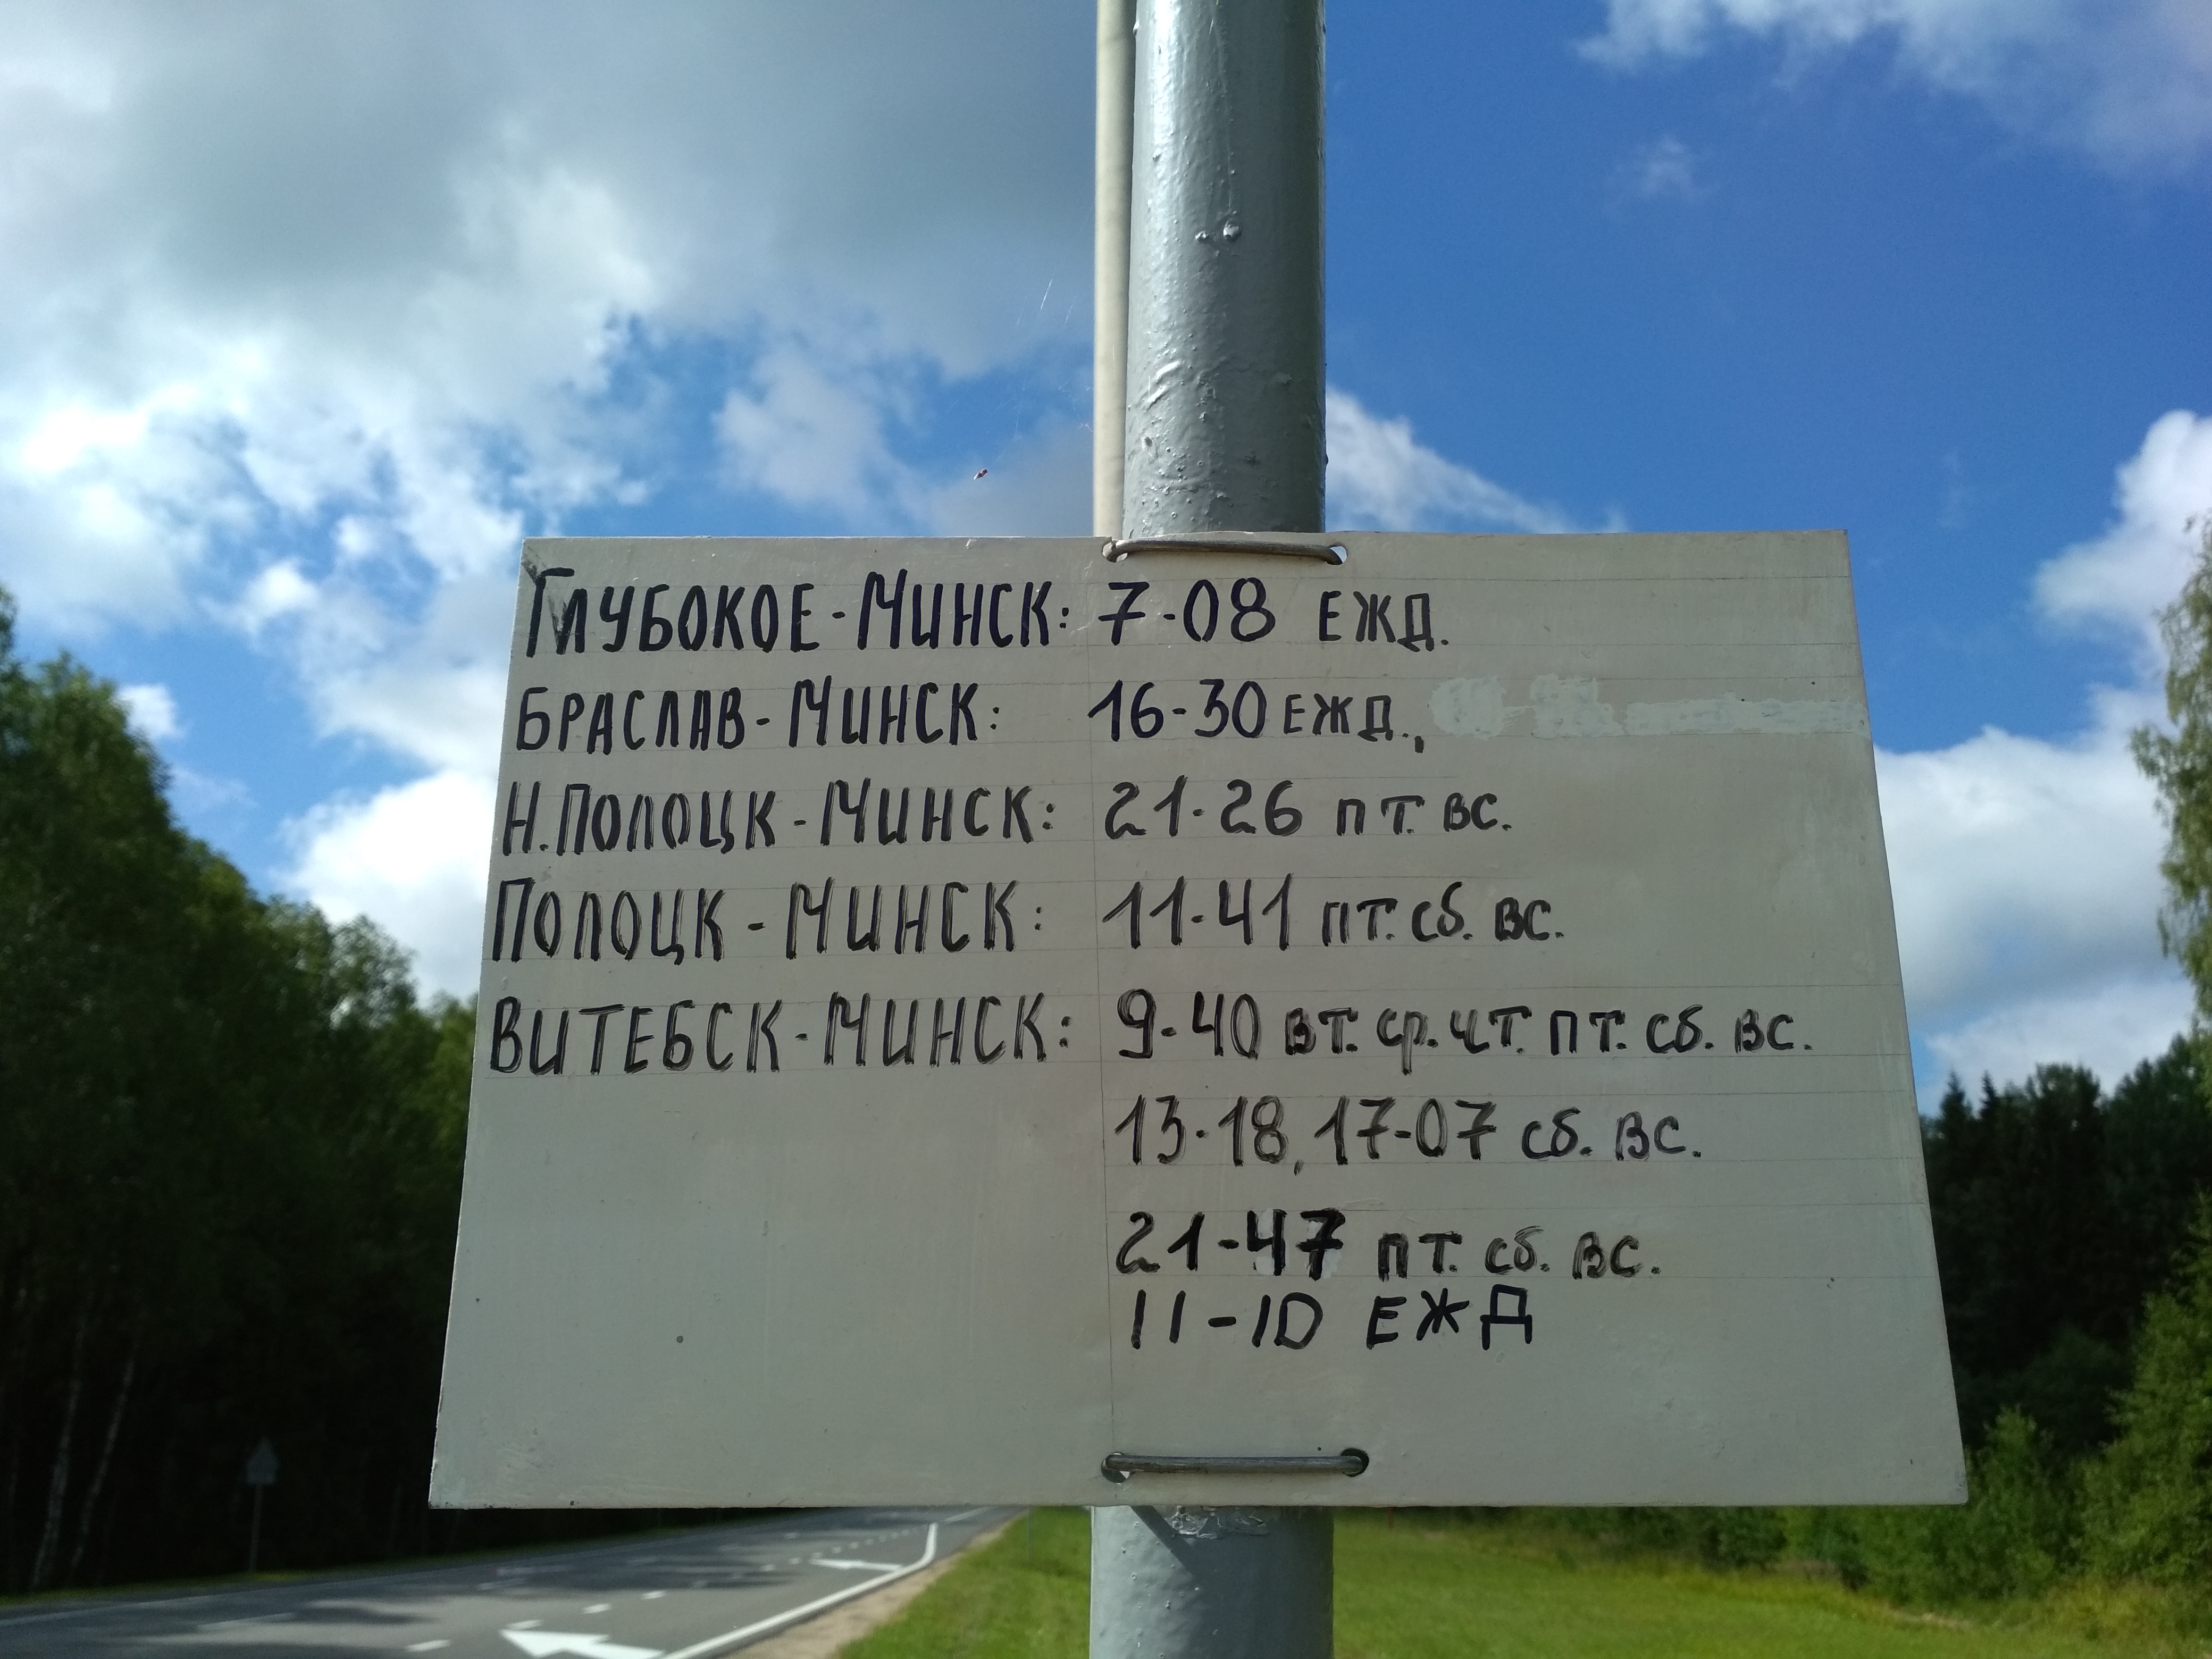 ГЛУБОКОЕ-МИНСК: 7-08 ЕЖД.
БРАСЛАВ-МИНСК: 16-30 ЕЖД.,
Н.ПОЛОЦК-МИНСК: 21-26 ПТ. ВС.
ПОЛОЦК-МИНСК: 11-41 ПТ. Сб. ВС.
ВИТЕБСК-МИНСК: 9-40 ВТ. Ср. ЧТ. ПТ. Сб. ВС.
13-18, 17-07 Сб. ВС.
21-47 ПТ. Сб. ВС.
11-10 ЕЖД